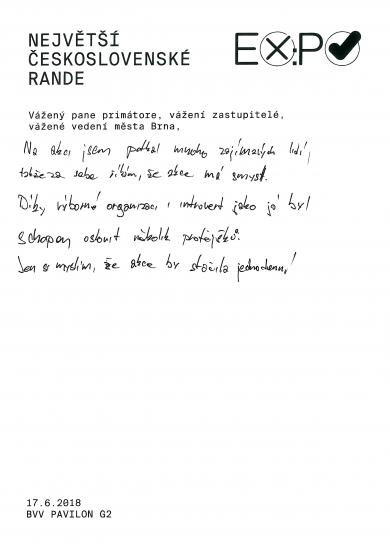 NEJVĚTŠÍ
ČESKOSLOVENSKÉ
RANDE
EXPO
Vážený pane primátore, vážení zastupitelé,
vážené vedení města Brna,
Na akci jsem potkal mnoho zajímavých lidí,
takže za sebe říkám, že akce má smysl.
Díky výborné organizaci i introvert jako já byl
schopen oslovit několik protějšků.
Jen si myslím, že akce by stačila jednodenní!
17.6.2018
BVV PAVILON G2